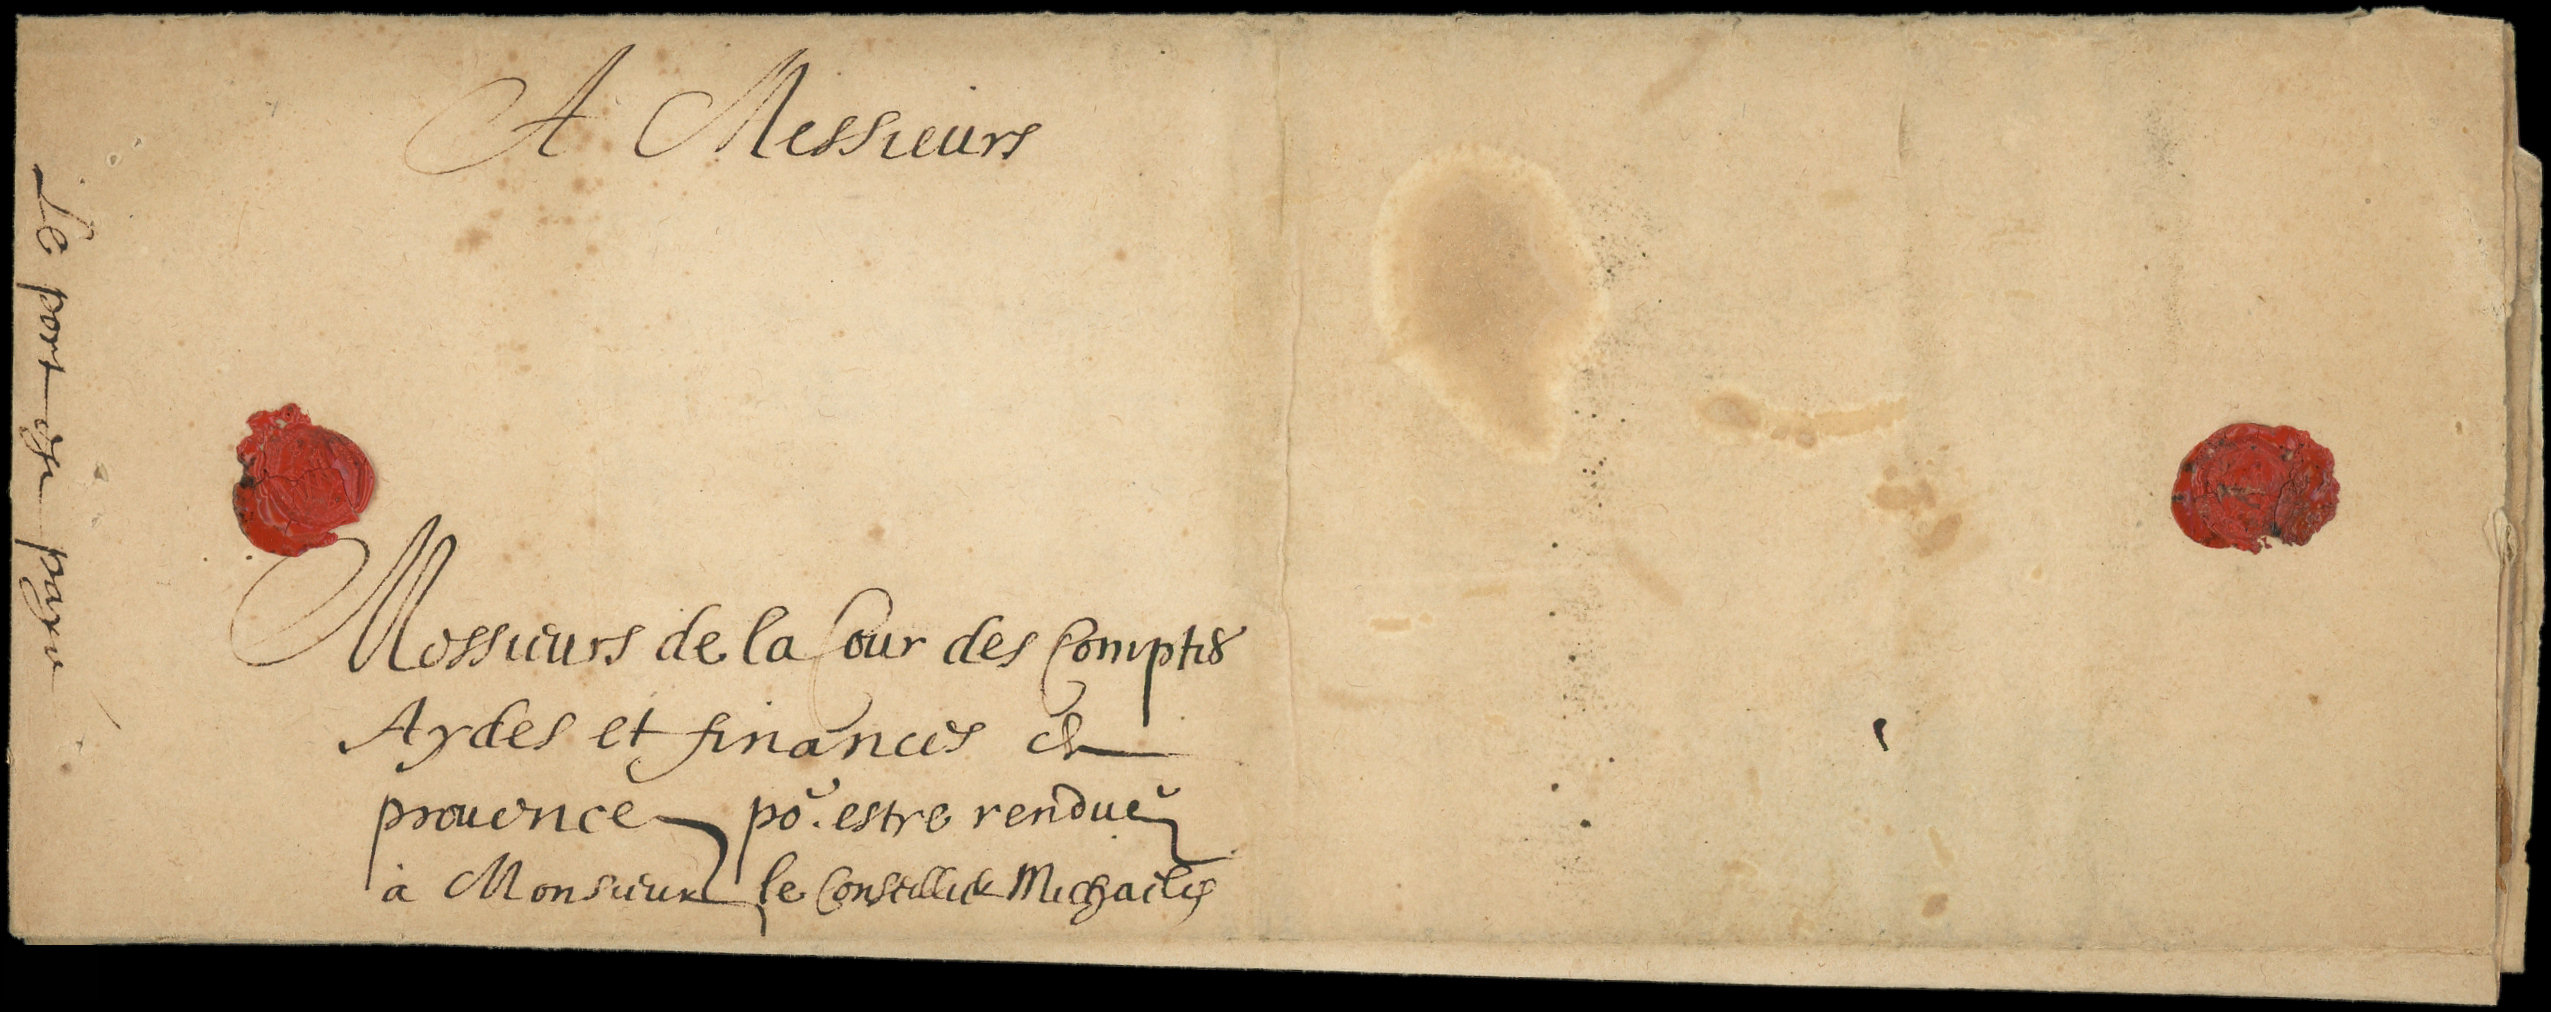 A Messieurs
Messieurs de la Cour des Comptes
Aydes et finances de
prouence po.^r estre rendue
à Monsieur le Conseiller Michaelis
Le port est payé